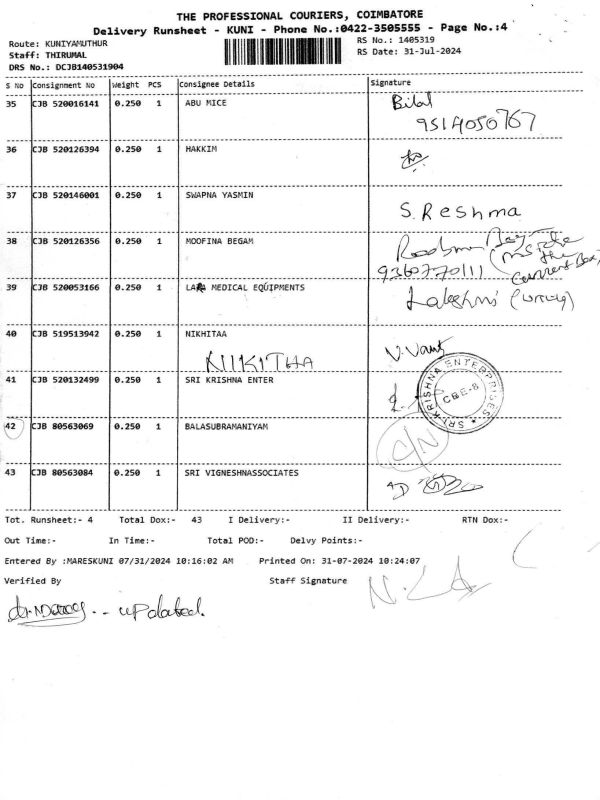 THE PROFESSIONAL COURIERS, COIMBATORE
Delivery Runsheet - KUNI - Phone No.:0422-3505555 - Page No.:4
Route: KUNIYAMUTHUR
RS No.: 1405319
Staff: THIRUMAL
RS Date: 31-Jul-2024
DRS No.: DCJB140531904
S No Consignment No Weight PCS Consignee Details Signature
35 CJB 520016141 0.250 1 ABU MICE Bilal
9514050767
36 CJB 520126394 0.250 1 HAKKIM
37 CJB 520146001 0.250 1 SWAPNA YASMIN S. Reshma
38 CJB 520126356 0.250 1 MOOFINA BEGAM
9360770111 (inside the current Box)
39 CJB 520053166 0.250 1 LARA MEDICAL EQUIPMENTS Lakshmi
40 CJB 519513942 0.250 1 NIKHITAA
NIKITHA
41 CJB 520132499 0.250 1 SRI KRISHNA ENTER
SRI KRISHNA ENTERPRISES CBE-8
42 CJB 80563069 0.250 1 BALASUBRAMANIYAM C/N
43 CJB 80563084 0.250 1 SRI VIGNESHNASSOCIATES
Tot. Runsheet:- 4 Total Dox:- 43 I Delivery:- II Delivery:- RTN Dox:-
Out Time:- In Time:- Total POD:- Delvy Points:-
Entered By :MARESKUNI 07/31/2024 10:16:02 AM Printed On: 31-07-2024 10:24:07
Verified By Staff Signature
updated.